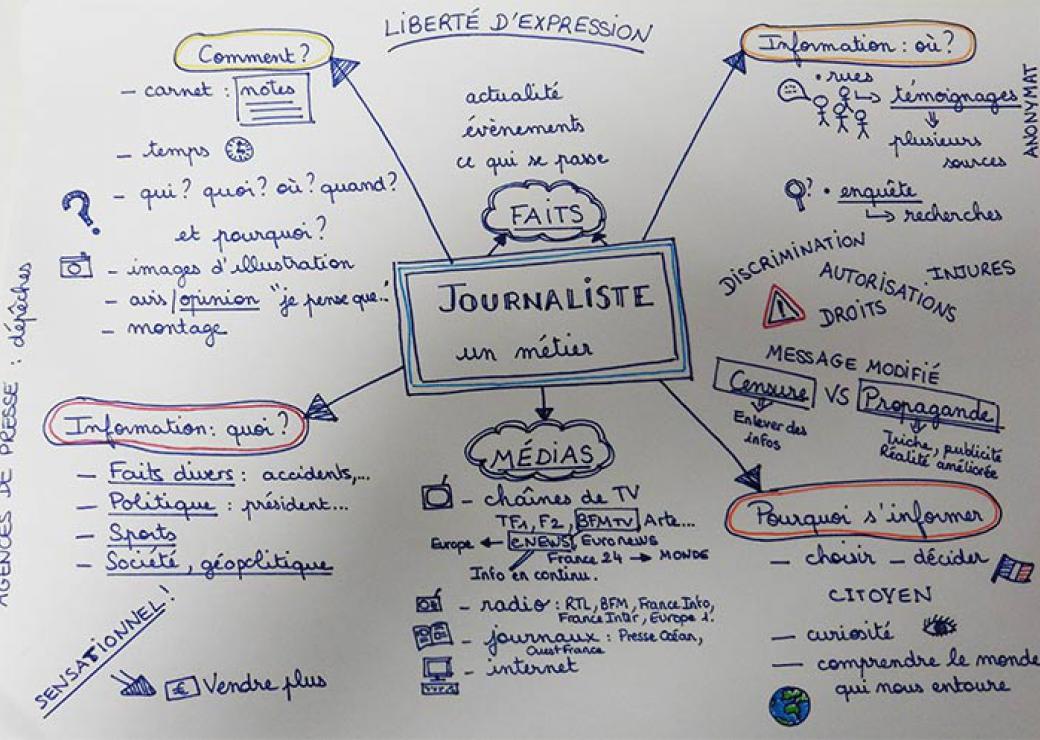 LIBERTÉ D'EXPRESSION
Comment ?
- carnet : notes
- temps
? - qui ? quoi ? où ? quand ?
et pourquoi ?
- images d'illustration
- avis/opinion "je pense que.."
- montage
actualité
évènements
ce qui se passe
FAITS
JOURNALISTE
un métier
Information : où ?
• rues
↳ témoignages
⇓
plusieurs
sources
ANONYMAT
? • enquête
↳ recherches
DISCRIMINATION
AUTORISATIONS
INJURES
DROITS
!
MESSAGE MODIFIÉ
Censure VS Propagande
⇓
Enlever des
infos
⇓
Triche, publicité
Réalité améliorée
AGENCES DE PRESSE : dépêches
Information : quoi ?
- Faits divers : accidents,...
- Politique : président...
- Sports
- Société, géopolitique
SENSATIONNEL !
€ Vendre plus
MÉDIAS
- chaînes de TV
TF1, F2, BFMTV, Arte...
Europe ← CNEWS, Euronews
France 24 → MONDE
Info en continu.
- radio : RTL, BFM, France Info,
France Inter, Europe 1.
- journaux : Presse Océan,
Ouest France
- internet
Pourquoi s'informer
- choisir - décider
CITOYEN
- curiosité
- comprendre le monde
qui nous entoure